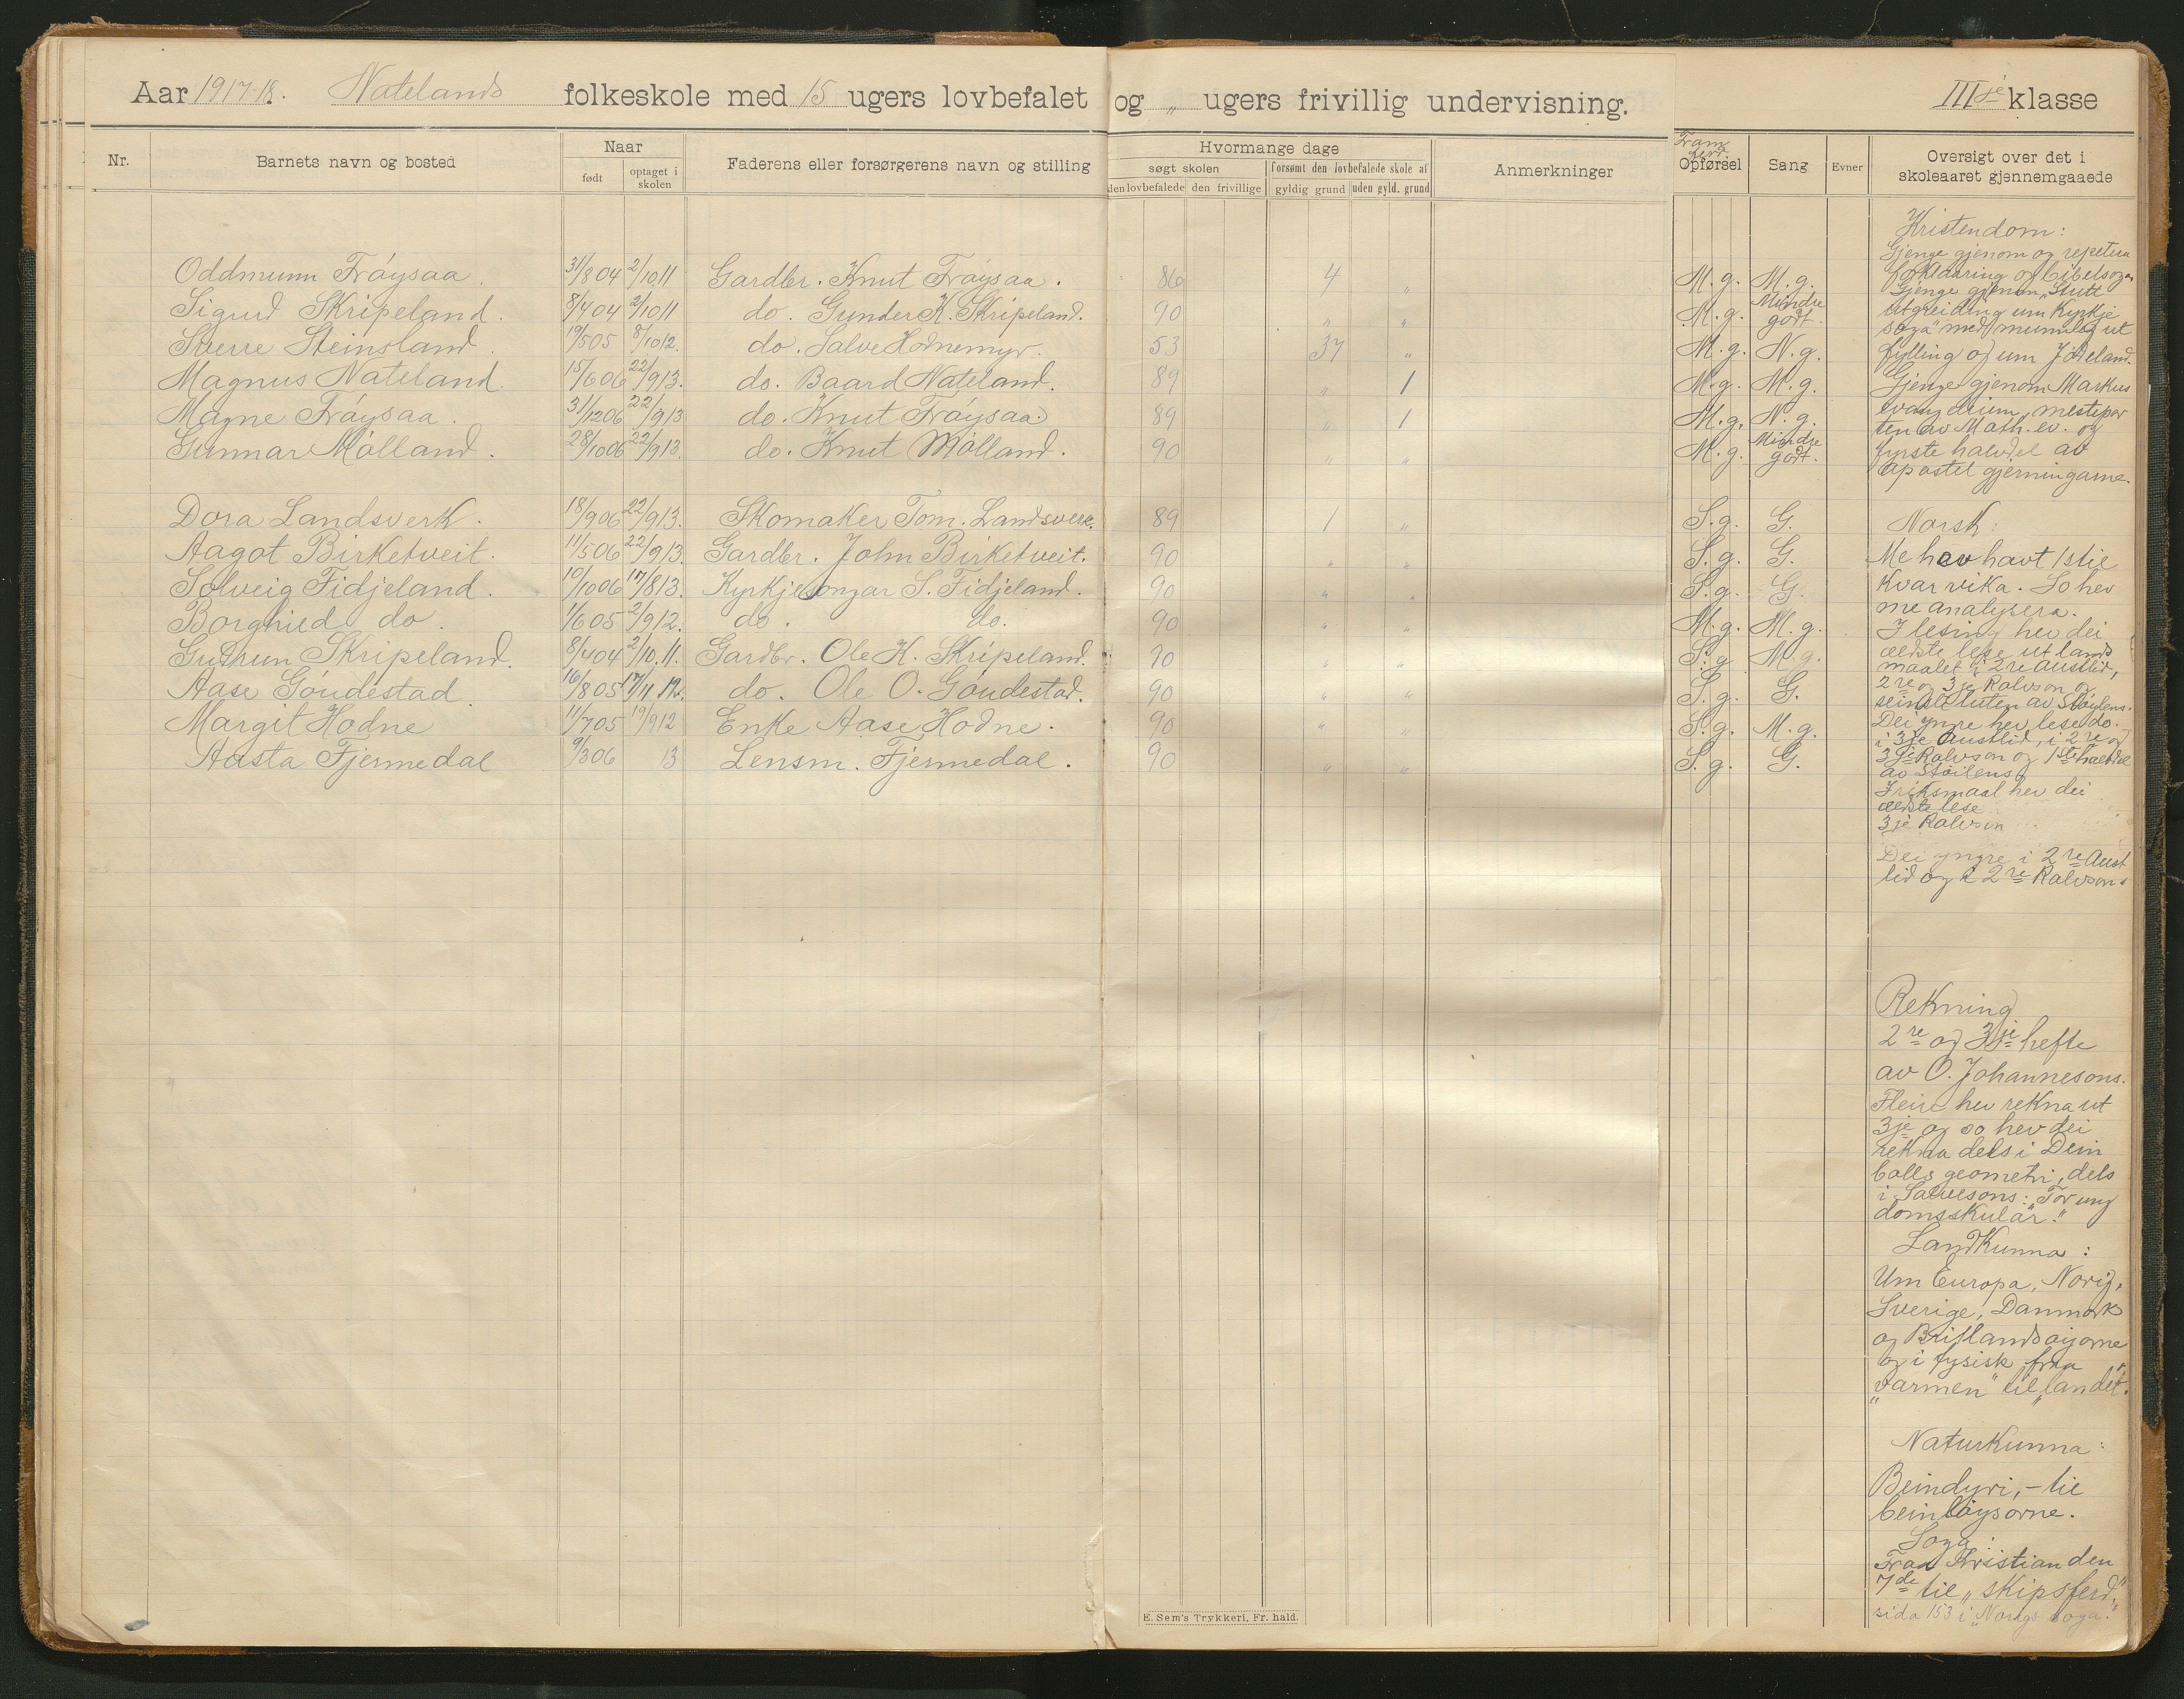 Aar 1917-18. Natelands folkeskole med 15 ugers lovbefalet og " ugers frivillig undervisning. IIIje klasse
Nr. Barnets navn og bosted Naar født optaget i skolen Faderens eller forsørgerens navn og stilling Hvormange dage søgt skolen den lovbefalede den frivillige forsømt den lovbefalede skole af gyldig grund uden gyld. grund Anmerkninger Opførsel Sang Evner Oversigt over det i skoleaaret gjennemgaaede
Oddmunn Frøysaa. 31/8 04 2/10.11 Gardbr. Knut Frøysaa. 86 4 " M.g. M.g.
Sigurd Skripeland. 8/4 04 2/10 11 do. Gunder K. Skripeland. 90 " " M.g. Mindre godt.
Sverre Steinsland. 19/5 05 8/10 12. do. Salve Hodnemyr. 53 37 " M.g. N.g.
Magnus Nateland. 15/6 06 22/9 13. do. Baard Nateland. 89 " 1 M.g. M.g.
Magne Frøysaa. 31/12 06 22/9 13 do. Knut Frøysaa. 89 " 1 M.g. N.g.
Gunnar Mølland. 28/10 06 22/9 13. do. Knut Mølland. 90 " " M.g. Mindre godt.
Dora Landsverk. 18/9 06 22/9 13. Skomaker Tom. Landsverk. 89 1 " S.g. G.
Aagot Birketveit. 11/5 06 22/9 13 Gardbr. John Birketveit. 90 " " S.g. G.
Solveig Fidjeland. 10/10 06 17/8 13. Kyrkjesongar S. Fidjeland. 90 " " S.g. G.
Borghild do. 1/6 05 2/9 12. do. do. 90 " " M.g. M.g.
Gudrun Skripeland. 8/4 04 2/10.11. Gardbr. Ole K. Skripeland. 90 " " S.g M.g.
Aase Gøudestad. 16/8 05 17/4 12. do. Ole O. Gøudestad. 90 " " S.g. G.
Margit Hodne 11/7 05 19/9 12 Enke Aase Hodne. 90 " " S.g. M.g.
Aasta Fjermedal 9/3 06 13 Lensm. Fjermedal. 90 " " S.g. G.
Kristendom:
Gjenge gjenom og repetera
forklaaring og bibelsoga
Gjenge gjenom "Stutt
utgreiding um Kyrkje
soga" med munnleg ut
fylling og um Jødeland.
Gjenge gjenom Markus
evangelium, mestepar
ten av Math. ev. og
fyrste halvdel av
apostel gjerningarne.
Norsk:
Me hev havt 1 stil
kvar vika. So hev
me analysera.
I lesing hev dei
eldste lese ut lands
maalet i 2re Austlid,
2re og 3je Rolvson og
seinste luten av Støylens.
Dei yngre hev lese do.
i 3je Austlid, i 2re og
3je Rolvson og 1ste halvdel
av Støilens
I riksmaal hev dei
eldste lese
3je Rolvson
Dei yngre i 2re Aust
lid og i 2re Rolvsons
Rekning
2re og 3je hefte
av O. Johannesons.
Fleire hev rekna ut
3je og so hev dei
rekna dels i Dein
bolls geometri, dels
i Salvesons: "For ung
domsskular."
Landkunna:
Um Europa, Norig,
Sverige, Danmork
og Britlandsøyorne
og i fysisk fraa
"varmen" til "landet".
Naturkunna:
Beindyri, - til
beinløysorne.
Soga:
Fraa Kristian den
7de til "skipsferd,"
sida 153 i "Norigs soga."
E. Sem's Trykkeri, Fr. hald.